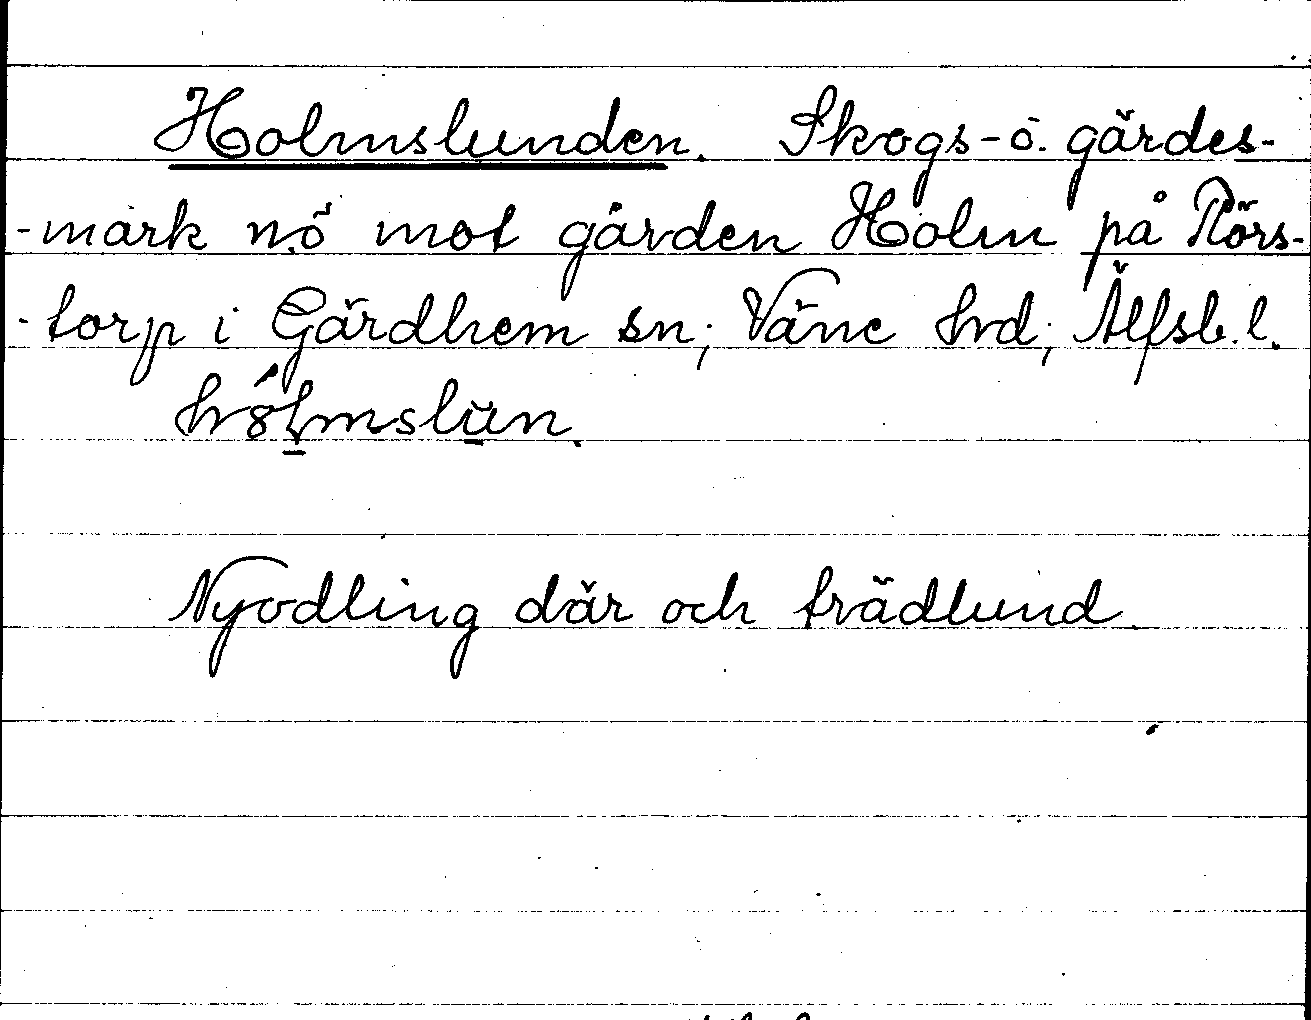 Holmslunden. Skogs- o. gärdes-
-mark nö mot gården Holm på Rörs-
-torp i Gärdhem sn; Väne hrd; Älfsb. l.
Nyodling där och trädlund.